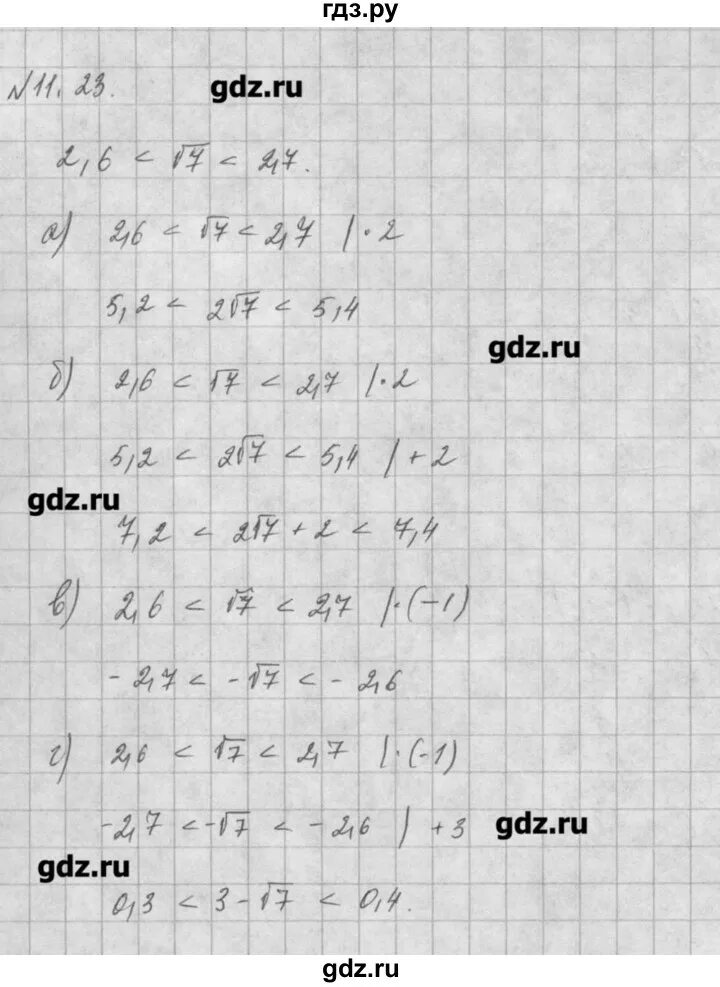 гдз.ру
№11.23.
gdz.ru
2,6 < √7 < 2,7.
а) 2,6 < √7 < 2,7 | · 2
5,2 < 2√7 < 5,4
gdz.ru
б) 2,6 < √7 < 2,7 | · 2
5,2 < 2√7 < 5,4 | + 2
gdz.ru
7,2 < 2√7 + 2 < 7,4
в) 2,6 < √7 < 2,7 | · (-1)
- 2,7 < -√7 < - 2,6
г) 2,6 < √7 < 2,7 | · (-1)
-2,7 < -√7 < -2,6 | + 3
gdz.ru
gdz.ru
0,3 < 3 - √7 < 0,4.
gdz.ru